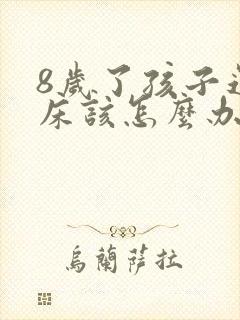 8歲了孩子
床該怎麼办
烏蘭薩拉